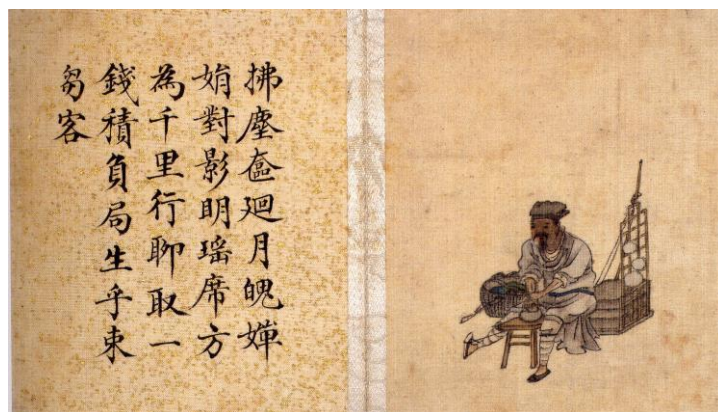 拂塵奩廻月魄嬋
娟對影明瑤席方
為千里行聊取一
錢積負局生乎束
芻客